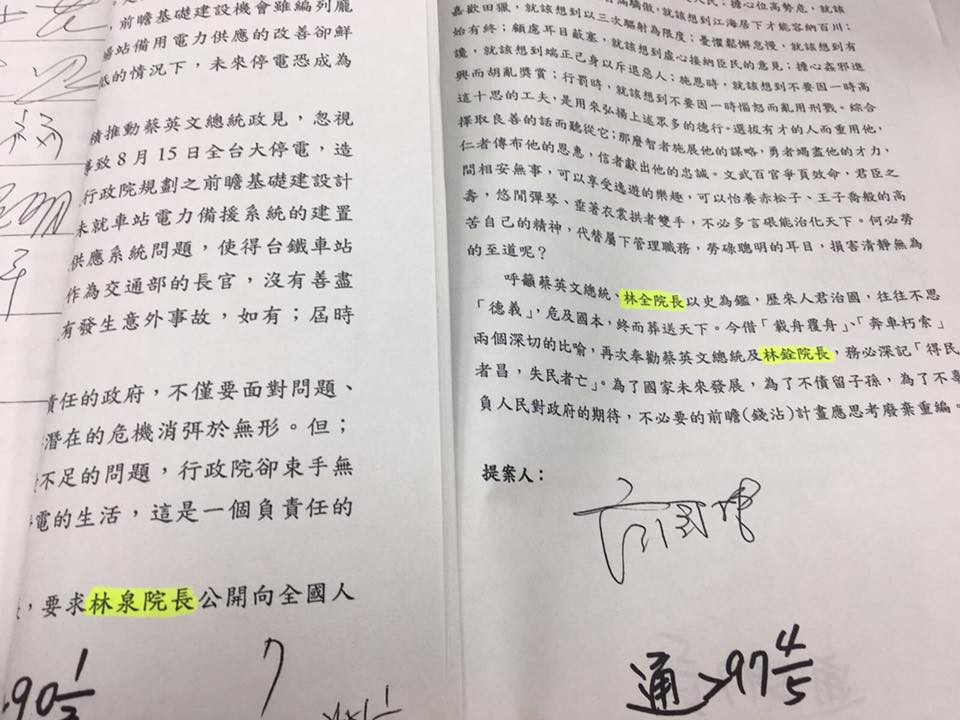 ,前瞻基礎建設機會雖編列龐
場站備用電力供應的改善卻鮮
的情況下,未來停電恐成為
積推動蔡英文總統政見,忽視
導致8月15日全台大停電,造
行政院規劃之前瞻基礎建設計
未就車站電力備援系統的建置
供應系統問題,使得台鐵車站
作為交通部的長官,沒有善盡
有發生意外事故,如有;屆時
責任的政府,不僅要面對問題、
潛在的危機消弭於無形。但;
不足的問題,行政院卻束手無
停電的生活,這是一個負責任的
,要求林泉院長公開向全國人
滿驕傲,就該想到江海居下才能容納百川;
嘉歡田獵,就該想到以三次驅射為限度;憂懼鬆懈怠慢,就該想到有
始有終;顧慮耳目蔽塞,就該想到虛心接納臣民的意見;擔心姦邪進
讒,就該想到端正己身以斥退惡人;施恩時,就該想到不要因一時高
興而胡亂獎賞;行罰時,就該想到不要因一時惱怒而亂用刑戮。綜合
這十思的工夫,是用來弘揚上述眾多的德行。選拔有才的人而重用他,
擇取良善的話而聽從它;那麼智者施展他的謀略,勇者竭盡他的才力,
仁者傳布他的恩惠,信者獻出他的忠誠。文武百官爭頁效命,君臣之
間相安無事,可以享受逸遊的樂趣,可以怡養赤松子、王子喬般的高
壽,悠閒彈琴、垂著衣裳拱者雙手,不必多言碬能治化天下。何必勞
苦自己的精神,代替屬下管理職務,勞碌聰明的耳目,損害清靜無為
的至道呢?
呼籲蔡英文總統、林全院長以史為鑑,歷來人君治國,往往不思
「德義」,危及國本,終而葬送天下。今借「載舟覆舟」、「奔車朽索」
兩個深切的比喻,再次奉勸蔡英文總統及林銓院長,務必深記「得民
者昌,失民者亡」。為了國家未來發展,為了不債留子孫,為了不辜
負人民對政府的期待,不必要的前瞻(錢沾)計畫應思考廢棄重編。
提案人:
通>97 4/5